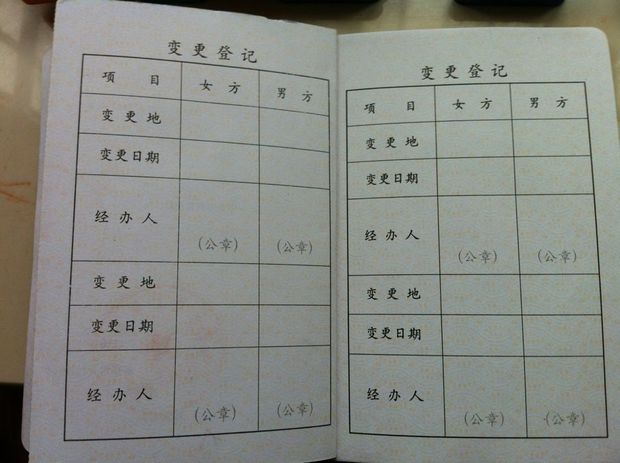 变更登记
项 目 女 方 男 方
变 更 地
变更日期
经 办 人
(公章) (公章)
变 更 地
变更日期
经 办 人
(公章) (公章)
变更登记
项 目 女 方 男 方
变 更 地
变更日期
经 办 人
(公章) (公章)
变 更 地
变更日期
经 办 人
(公章) (公章)